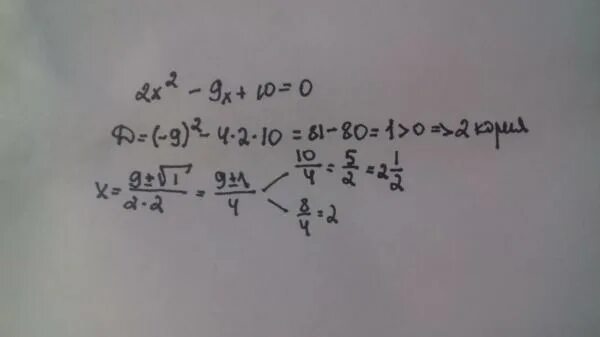 2x² - 9x + 10 = 0
D = (-9)² - 4·2·10 = 81 - 80 = 1 > 0 => 2 корня
x = (9±√1)/(2·2) = (9±1)/4
10/4 = 5/2 = 2 1/2
8/4 = 2